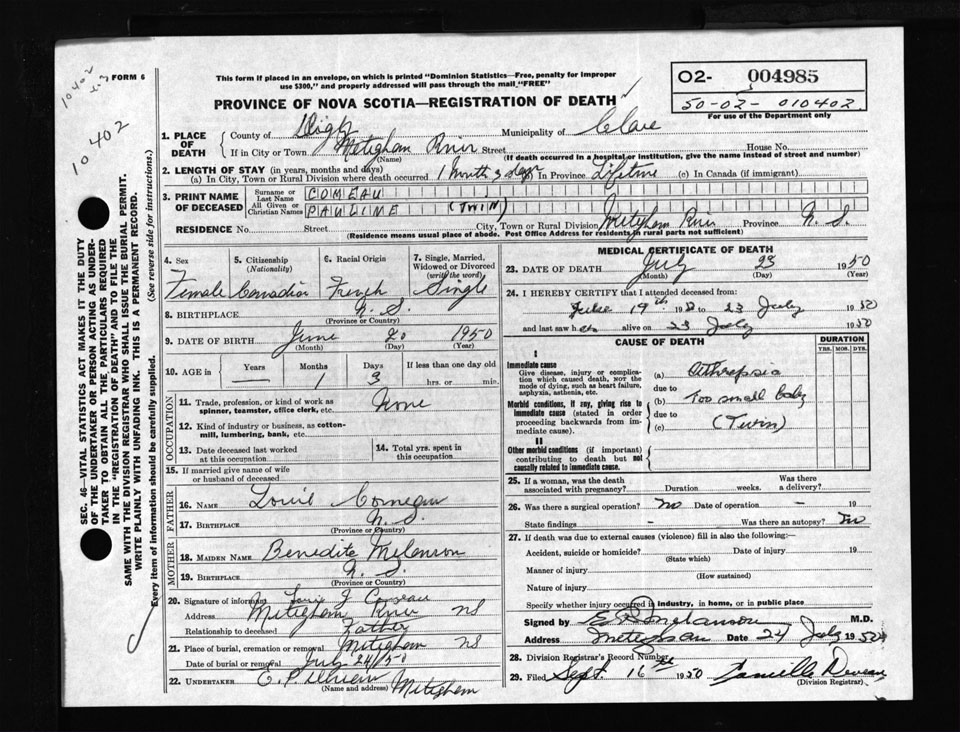 10402
FORM 6
10402
This form if placed in an envelope, on which is printed "Dominion Statistics—Free, penalty for improper
use $300," and properly addressed will pass through the mail "FREE"
PROVINCE OF NOVA SCOTIA—REGISTRATION OF DEATH
O2- 004985
50-02-010402
For use of the Department only
SEC. 46—VITAL STATISTICS ACT MAKES IT THE DUTY
OF THE UNDERTAKER OR PERSON ACTING AS UNDER-
TAKER TO OBTAIN ALL THE PARTICULARS REQUIRED
IN THE "REGISTRATION OF DEATH" AND TO FILE THE
SAME WITH THE DIVISION REGISTRAR WHO SHALL ISSUE THE BURIAL PERMIT.
WRITE PLAINLY WITH UNFADING INK. THIS IS A PERMANENT RECORD.
Every item of information should be carefully supplied. (See reverse side for instructions.)
1. PLACE OF DEATH County of Digby Municipality of Clare
If in City or Town Meteghan River Street House No.
(Name) (If death occurred in a hospital or institution, give the name instead of street and number)
2. LENGTH OF STAY (in years, months and days)
(a) In City, Town or Rural Division where death occurred 1 month 3 days In Province Lifetime (c) In Canada (if immigrant)
3. PRINT NAME OF DECEASED Surname or Last Name COMEAU
All Given or Christian Names PAULINE (TWIN)
RESIDENCE No. Street City, Town or Rural Division Meteghan River Province N. S.
(Residence means usual place of abode. Post Office Address for residents in rural parts not sufficient)
4. Sex Female
5. Citizenship (Nationality) Canadian
6. Racial Origin French
7. Single, Married, Widowed or Divorced (write the word) Single
8. BIRTHPLACE N. S.
(Province or Country)
9. DATE OF BIRTH June 20 1950
(Month) (Day) (Year)
10. AGE in Years — Months 1 Days 3 If less than one day old hrs. or min.
OCCUPATION
11. Trade, profession, or kind of work as
spinner, teamster, office clerk, etc. None
12. Kind of industry or business, as cotton-
mill, lumbering, bank, etc.
13. Date deceased last worked
at this occupation
14. Total yrs. spent in
this occupation
15. If married give name of wife
or husband of deceased
FATHER
16. NAME Louis Comeau
17. BIRTHPLACE N. S.
(Province or Country)
MOTHER
18. MAIDEN NAME Benedite Melanson
19. BIRTHPLACE N. S.
(Province or Country)
20. Signature of informant Louis J Comeau
Address Meteghan River NS
Relationship to deceased Father
21. Place of burial, cremation or removal Meteghan NS
Date of burial or removal July 24/50
22. UNDERTAKER E. P. Meteghan
(Name and address)
MEDICAL CERTIFICATE OF DEATH
23. DATE OF DEATH July 23 1950
(Month) (Day) (Year)
24. I HEREBY CERTIFY that I attended deceased from:
19th to 23 July 1950
and last saw her alive on 23 July 1950
CAUSE OF DEATH
DURATION
YRS. MOS. DYS.
I
Immediate cause
Give disease, injury or complica-
tion which caused death, NOT the
mode of dying, such as heart failure,
asphyxia, asthenia, etc.
(a) Athrepsia
due to
Morbid conditions, if any, giving rise to
immediate cause (stated in order
proceeding backwards from im-
mediate cause).
(b) Too small baby
due to
(c) (Twin)
II
Other morbid conditions (if important)
contributing to death but not
causally related to immediate cause.
25. If a woman, was the death
associated with pregnancy? Duration weeks. Was there
a delivery?
26. Was there a surgical operation? no Date of operation - 19
State findings - Was there an autopsy? no
27. If death was due to external causes (violence) fill in also the following:—
Accident, suicide or homicide? Date of injury 19
(State which)
Manner of injury
(How sustained)
Nature of injury
Specify whether injury occurred in industry, in home, or in public place
Signed by Melanson M.D.
Address Meteghan Date 24 July 1950
28. Division Registrar's Record Number
29. Filed Sept. 16th 1950 Camille Deveau
(Division Registrar)